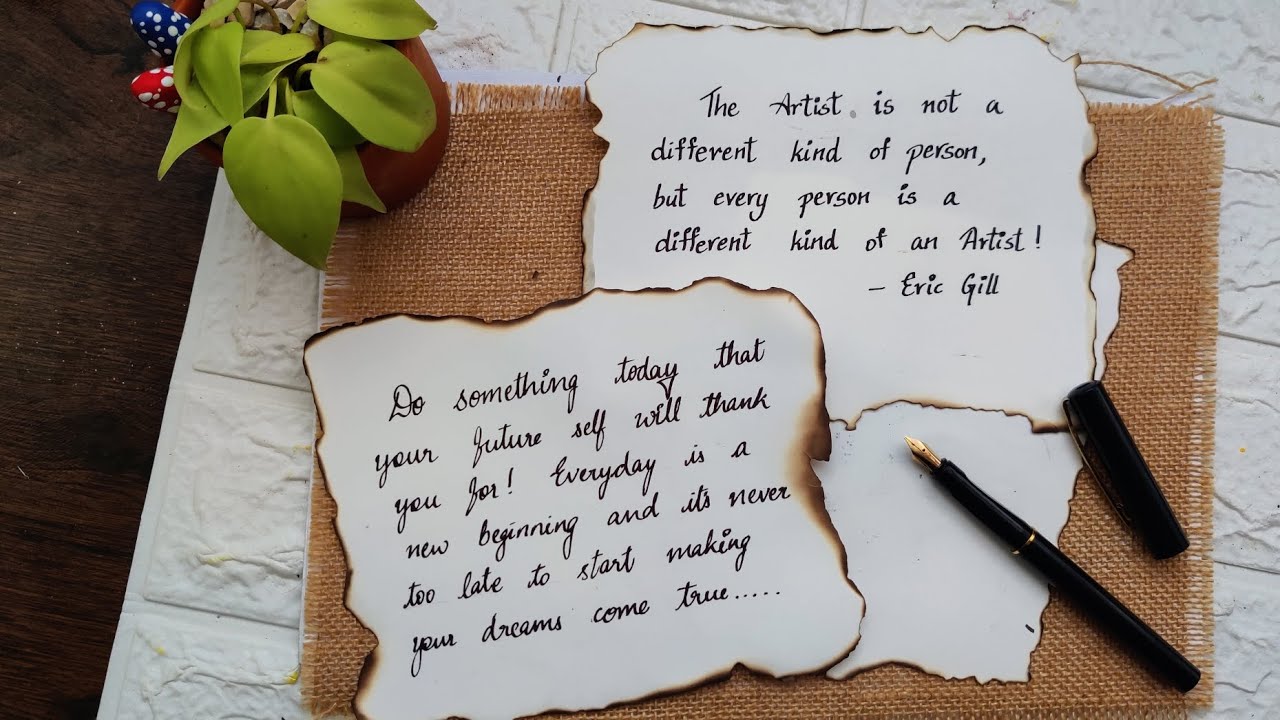 The Artist is not a
different kind of person,
but every person is a
different kind of an Artist!
– Eric Gill
Do something today that
your future self will thank
you for! Everyday is a
new beginning and it's never
too late to start making
your dreams come true.....